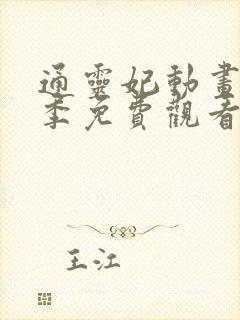 通靈妃動畫
季免費觀看
王江